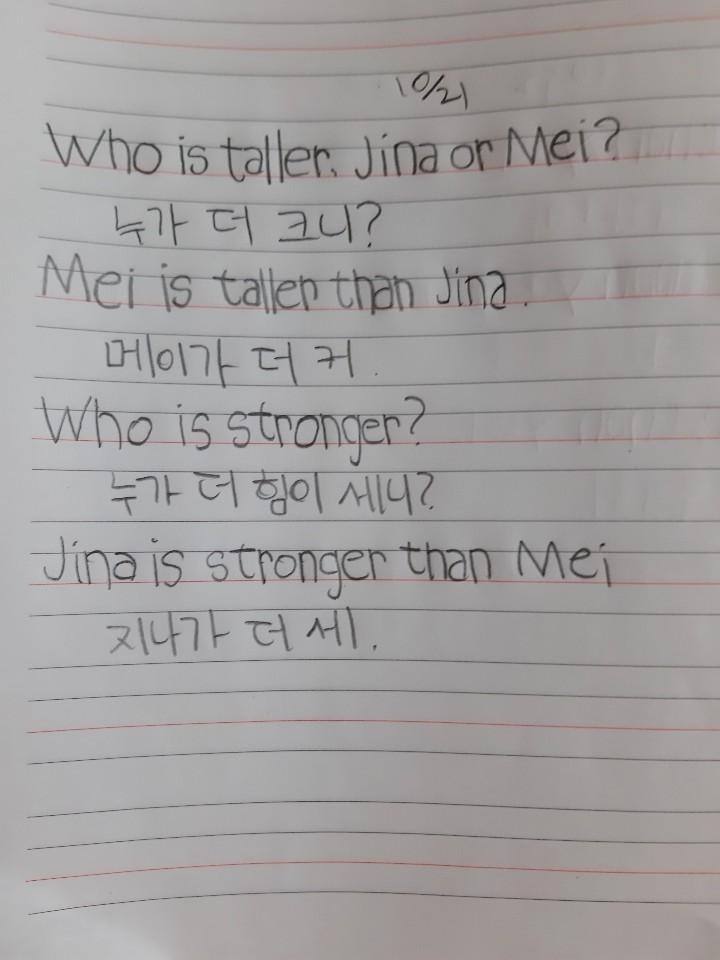 10/21
Who is taller, Jina or Mei?
누가 더 크니?
Mei is taller than Jina.
메이가 더 커.
Who is stronger?
누가 더 힘이 세니?
Jina is stronger than Mei
지나가 더 세.